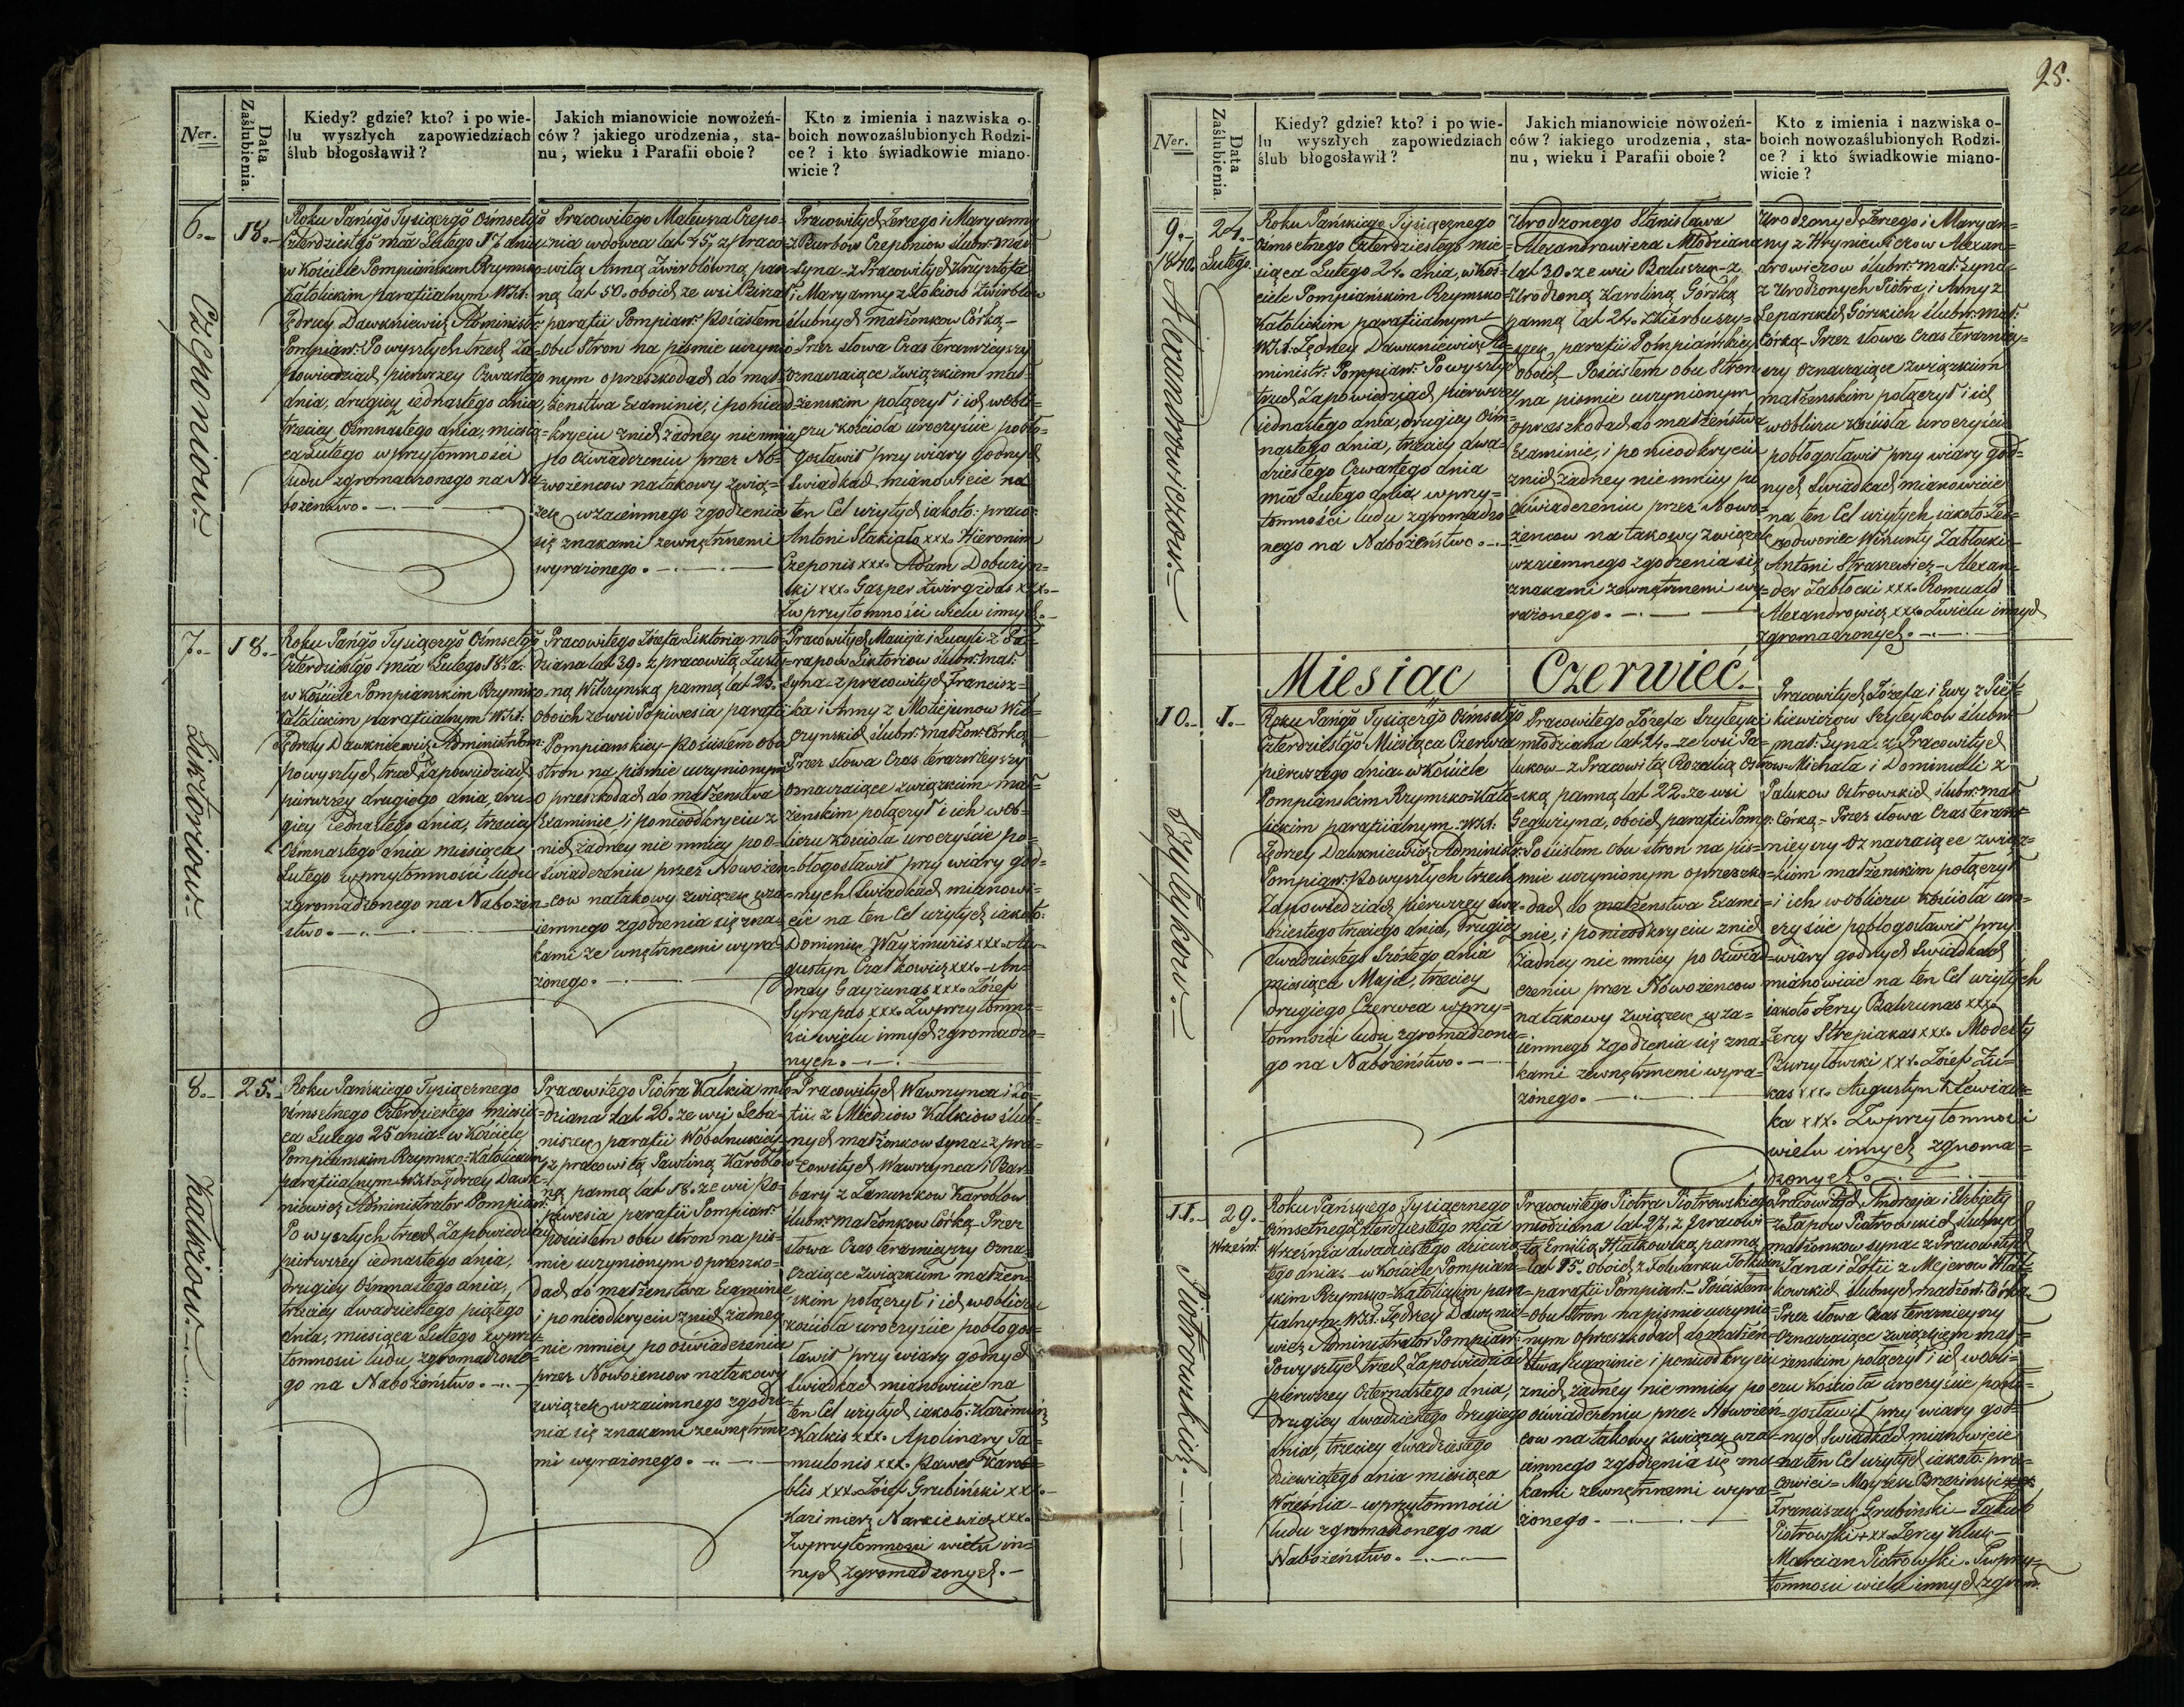 Ner.
Data
Zaślubienia.
Kiedy? gdzie? kto? i po wie-
lu wyszłych zapowiedziach
ślub błogosławił?
Jakich mianowicie nowożeń-
ców? jakiego urodzenia, sta-
nu, wieku i Parafii oboie?
Kto z imienia i nazwiska o-
boich nowozaślubionych Rodzi-
ce? i kto świadkowie miano-
wicie?
6.-
18.-
Roku Pańgo Tysiącgo Ośmsetgo
Czterdziestgo mca Lutego 18 dnia
w Kościele Pompiańskim Rzymsko-
Katolickim parafiialnym WJXt:
Jędrzey Dawkniewicz Administr:
Pompiań: Po wyszłych trzech Za-
powiedziach, pierwszey Czwartego
dnia, drugiey jednastego dnia,
trzeciey Ośmnastego dnia, miesią-
ca Lutego w przytomności
ludu zgromadzonego na Na-
bożeństwo.
Pracowitego Mateusza Czepo-
nia wdowca lat 45, z Praco-
witą Anną Żwirblówną pan-
ną lat 50. oboich ze wsi
parafii Pompiań: Pościsłem
obu Stron na piśmie uczynio-
nym o przeszkodach do mał-
żeństwa Examinie, i ponieod-
kryciu znich żadney niemniey
po Oświadczeniu przez No-
wożencow natakowy zwią-
zek wzaiemnego zgodzenia
się znakami zewnętrznemi
wyrażonego.
Pracowitych Jerzego i Maryanny
z Burbów Czeponiow ślubn: mał:
syna - z Pracowitych Krzysztofa
i Maryanny z Stokiow Żwirblow
ślubnych małżonkow Córką -
Przez słowa Czas teraźnieyszy
oznaczaiące związkiem mał-
żenskim połączył i ich w obli-
czu Kościoła uroczyście pobło-
gosławił przy wiary godnych
świadkach mianowicie na
ten Cel użytych iakoto: praco:
Antoni Stakiało xxx. Hieronim
Czeponis xxx. Adam Doburzyn-
ski xxx. Gasper Żwirgzdas xxx.-
I w przytomności wielu innych.-
Czeponiow:
7.-
18.-
Roku Pańgo Tysiącgo Ośmsetgo
Czterdziestgo mca Lutego 18. d:
w Kościele Pompianskim Rzymsko-
Katolickim parafiialnym WJXt:
Jędrzey Dawkniewicz Administr: Pom:
po wyszłych trzech Zapowiedziach
pierwszey drugiego dnia, dru-
giey Jednastego dnia, trzeciey
Ośmnastego dnia miesiąca
Lutego w przytomności ludu
zgromadzonego na Nabożeń-
stwo.
Pracowitego Józefa Liktoria mło-
dziana lat 39. z pracowitą Justy-
ną Wilczynską panną lat 23.
oboich ze wsi Popiwesia parafii
Pompianskiey - Pościsłem obu
stron na piśmie uczynionym
o przeszkodach do małżenstwa
Examinie, i ponieodkryciu z
nich żadney nie mniey po o-
świadczeniu przez Nowożen-
cow natakowy związek wza-
iemnego zgodzenia się zna-
kami ze wnętrznemi wyra-
żonego.
Pracowitych Macieja i Lucyli z Sa-
rapow Liktoriow ślubn: mał:
syna - z pracowitych Francisz-
ka i Anny z Motiejunow Wil-
czynskich ślubn: małżon: Córką
Przez słowa Czas teraznieyszy
oznaczaiące związkiem mał-
żenskim połączył i ich w ob-
liczu Kościoła uroczyście po-
błogosławił przy wiary god-
nych świadkach mianowi-
cie na ten Cel użytych iakoto:
Dominik Wayzmuziis xxx. Au-
gustyn Czaskowicz xxx. - An-
drzey Gayżunas xxx. Józef
Syrapas xxx. I w przytomno-
ści wielu innych zgromadzo-
nych.
Liktoriow:
8.-
25.-
Roku Pańskiego Tysiącznego
Ośmsetnego Czterdziestego miesią-
ca Lutego 25 dnia w Kościele
Pompianskim Rzymsko-Katolickim
parafiialnym WJXt: Jędrzey Dawk-
niewicz Administrator Pompian:
Po wyszłych trzech Zapowiedziach
pierwszey iednastego dnia,
drugiey Ośmnastego dnia,
trzeciey dwadziestego piątego
dnia, miesiąca Lutego w przy-
tomności ludu zgromadzone-
go na Nabożeństwo.
Pracowitego Piotra Kalkia mło-
dziana lat 26. ze wsi Leba-
niszek parafii Wobolnickiey
z pracowitą Pawliną Karoblow-
ną panną lat 18. ze wsi Po-
piwesia parafii Pompian:
Pościsłem obu stron na piś-
mie uczynionym o przeszko-
dach do małżenstwa Examinie
i ponieodkryciu znich żadney
nie mniey po oświadczeniu
przez Nowożencow natakowy
związek wzaiemnego zgodze-
nia się znakami zewnętrzne-
mi wyrażonego.
Pracowitych Wawrzynca i Zo-
fii z Miedziow Kalkiow ślub-
nych małżonkow syna - z pra-
cowitych Wawrzynca i Bar-
bary z Janunkow Karoblow
ślubn: małżonkow Córką - Przez
słowa Czas teraznieyszy ozna-
czaiące związkiem małżen-
skim połączył i ich w obliczu
kościoła uroczyście pobłogos-
ławił przy wiary godnych
świadkach mianowicie na
ten Cel użytych iakoto: Kazimierz
Kalkis xxx. Apolinary Ja-
mulonis xxx. Paweł Karob-
lis xxx. Józef Grubiński xxx.-
Kazimierz Narkiewicz xxx.
I w przytomnosci wielu in-
nych zgromadzonych.-
Kalkiow:
25.
Ner.
Data
Zaślubienia
Kiedy? gdzie? kto? i po wie-
lu wyszłych zapowiedziach
ślub błogosławił?
Jakich mianowicie nowożeń-
ców? iakiego urodzenia, sta-
nu, wieku i Parafii oboie?
Kto z imienia i nazwiska o-
boich nowozaślubionych Rodzi-
ce? i kto świadkowie miano-
wicie?
9.-
1840.
24.-
Lutego.
Roku Pańskiego Tysiącznego
Ośmsetnego Czterdziestego mie-
siąca Lutego 24. dnia, w Koś-
ciele Pompiańskim Rzymsko-
Katolickim parafiialnym
WJXt: Jędrzey Dawkniewicz Ad-
ministr: Pompian: Po wyszłych
trzech Zapowiedziach pierwszey
iednastego dnia, drugiey Ośm-
nastego dnia, trzeciey dwa-
dziestego Czwartego dnia
mca Lutego dnia, w przy-
tomności ludu zgromadzo-
nego na Nabożeństwo.
Urodzonego Stanisława
Alexandrowicza Młodziana
lat 30. ze wsi Batuszek - z
Urodzoną Karoliną Górską
panną lat 24. z Kierbuszy-
szek, parafii Pompianskiey
oboich - Pościsłem obu Stron
na piśmie uczynionym
o przeszkodach do małżeństwa
Examinie, i po nieodkryciu
znich żadney nie mniey po
oświadczeniu przez Nowo-
żencow na takowy związek
wzaiemnego zgodzenia się
znakami zewnętrznemi wy-
rażonego.
Urodzonych Jerzego i Maryan-
ny z Hryniewiczow Alexan-
drowiczow ślubn: mał: syna -
z Urodzonych Piotra i Anny z
Leparskich Górskich ślubn: mał:
Córką - Przez słowa Czas teraźniey-
szy oznaczaiące związkiem
małżenskim połączył i ich
w obliczu Kościoła uroczyście
pobłogosławił przy wiary god-
nych świadkach mianowicie
na ten Cel użytych, iakoto Jed-
nodworiec Wincenty Zabłocki -
Antoni Straszewicz - Alexan-
der Zabłocki xxx. Romuald
Alexandrowicz xxx. I wielu innych
zgromadzonych.
Alexandrowiczow:
Miesiąc Czerwiec.
10.-
1.-
Roku Pańgo Tysiącgo Ośmsetgo
Czterdziestgo Miesiąca Czerwca
pierwszego dnia - w Kościele
Pompianskim Rzymsko-Kato-
lickim parafiialnym. WJXt:
Jędrzey Dawkniewicz Administr:
Pompian: Po wyszłych trzech
Zapowiedziach, pierwszey dwa-
dziestego trzeciego dnia, drugiey
dwadziestego Szóstego dnia
miesiąca Maja, trzeciey
drugiego Czerwca w przy-
tomności ludu zgromadzone-
go na Nabożeństwo.
Pracowitego Józefa Szyleyki
młodziana lat 24. ze wsi Pa-
lukow - z Pracowitą Rozalią Ostrow-
ską panną lat 22. ze wsi
Gegużyna, oboich parafii Pomp:
Pościsłem obu stron na piś-
mie uczynionym o przeszko-
dach do małżenstwa Exami-
nie, i ponieodkryciu znich
żadney nie mniey po Oświad-
czeniu przez Nowożencow
natakowy związek wza-
iemnego zgodzenia się zna-
kami zewnętrznemi wyra-
żonego.
Pracowitych Józefa i Ewy z Piet-
kiewiczow Szyleykow ślubn:
mał: Syna - z Pracowitych
Michała i Dominelli z
Palukow Ostrowskich ślubn: mał:
Córką - Przez słowa Czas teraz-
nieyszy oznaczaiące związ-
kiem małżenskim połączył
i ich w Obliczu Kościoła uro-
czyście pobłogosławił przy
wiary godnych świadkach
mianowicie na ten Cel użytych
iakoto Jerzy Balczunas xxx.
Jerzy Strepiakas xxx. Modesty
Burzytowski xxx. Józef Żu-
kas xxx. Augustyn Klewiado-
ka xxx. I w przytomności
wielu innych zgroma-
dzonych.
Szyleykow:
11.-
29.-
Wrześn:
Roku Pańskiego Tysiącznego
Ośmsetnego Czterdziestego mca
Września dwadziestego dziewią-
tego dnia. - w Kościele Pompian-
skim Rzymsko-Katolickim para-
fialnym WJXt: Jędrzey Dawknie-
wicz Administrator Pompian:
Po wyszłych trzech Zapowiedziach
pierwszey Czternastego dnia,
drugiey dwadziestego drugiego
dnia, trzeciey dwadziestego
dziewiątego dnia miesiąca
Września - w przytomności
ludu zgromadzonego na
Nabożeństwo.
Pracowitego Piotra Piotrowskiego
młodziana lat 27, z Pracowi-
tą Emilią Hłatkowską panną
lat 25. oboich z Folwarku
parafii Pompian: - Pościsłem
obu Stron na piśmie uczynio-
nym o przeszkodach do małżeń-
stwa Examinie i ponieodkryciu
znich żadney nie mniey po
oświadczeniu przez Nowożen-
cow na takowy związek wza-
iemnego zgodzenia się zna-
kami zewnętrznemi wyra-
żonego.
Pracowitych Andrzeja i Elżbiety
z Łapow Piotrowskich ślubnych
małżonkow syna - z Pracowitych
Jana i Zofii z Mejerow Hłat-
kowskich ślubnych małżon: Córką.
Przez słowa Czas teraznieyszy
oznaczaiące związkiem mał-
żenskim połączył i ich w obli-
czu Kościoła uroczyście pobło-
gosławił przy wiary god-
nych świadkach mianowicie
na ten Cel użytych iakoto: pra-
cowici - Mateusz Brzezinski xxx
Franciszek Grabinski - Jakub
Piotrowski xxx Jerzy Kluk -
Marcian Piotrowski. I w przy-
tomności wielu innych zgrom:
Piotrowskich.